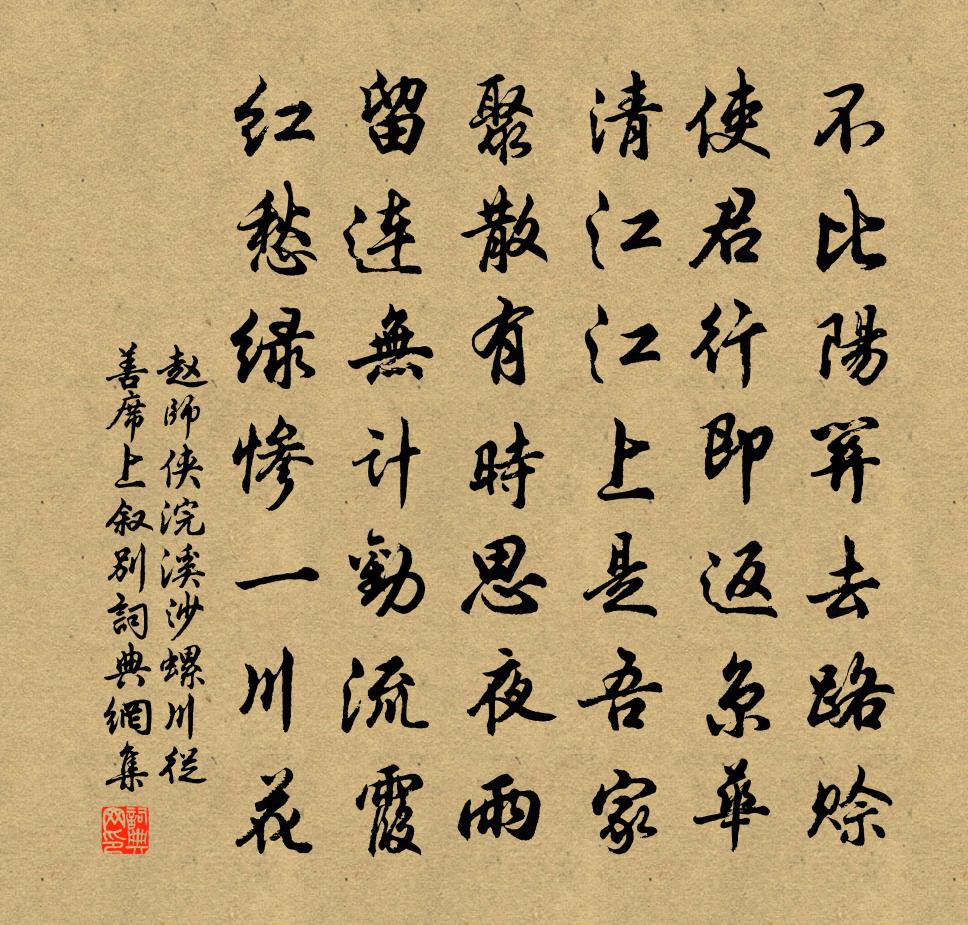 不比陽關去路賒
使君行即返京華
清江江上是吾家
聚散有時思夜雨
留連無計勸流霞
紅愁綠慘一川花
赵師侠浣溪沙螺川從
善席上叙别詞典網集
詞典网印